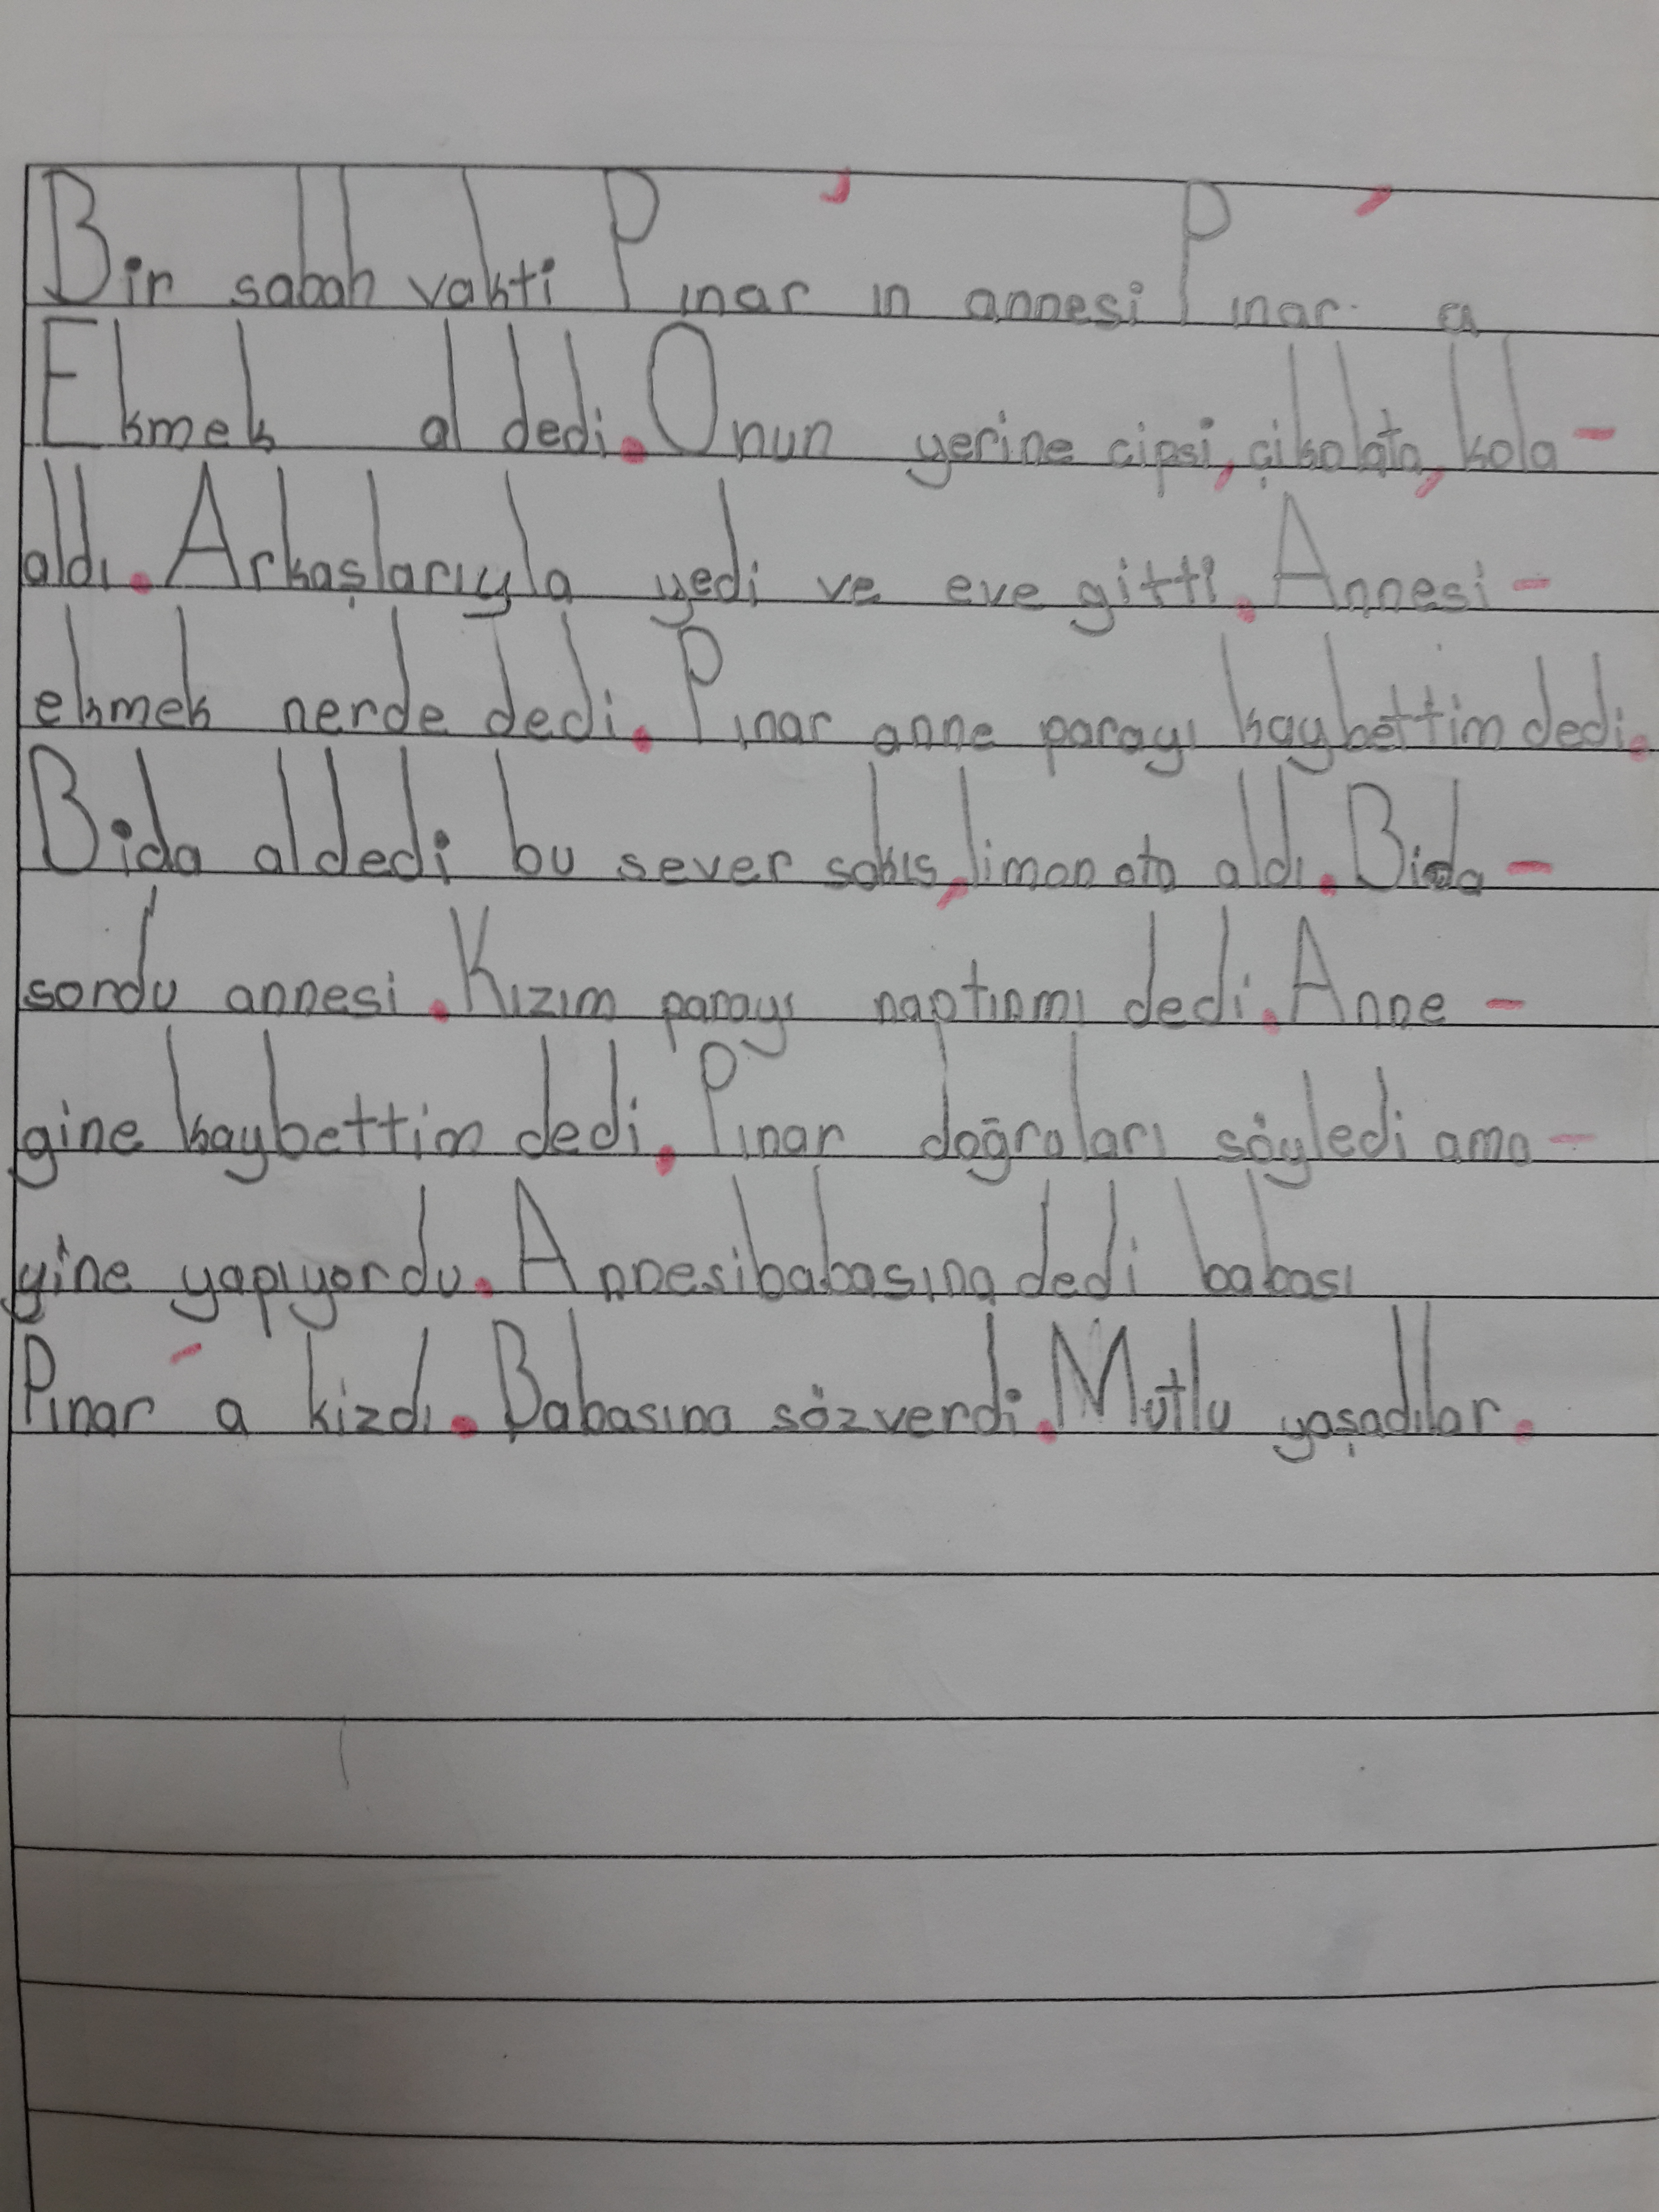 Bir sabah vakti Pınar'ın annesi Pınar'a
Ekmek al dedi. Onun yerine cipsi, çikolata, kola -
aldı. Arkaşlarıyla yedi ve eve gitti. Annesi -
ekmek nerde dedi. Pınar anne parayı kaybettim dedi.
Bida al dedi bu sever sakıs, limonata aldı. Bida -
sordu annesi. Kızım parayı naptınmı dedi. Anne -
gine kaybettim dedi. Pınar doğruları söyledi ama -
yine yapıyordu. Annesi babasına dedi babası
Pınar'a kizdı. Babasına söz verdi. Mutlu yaşadılar.